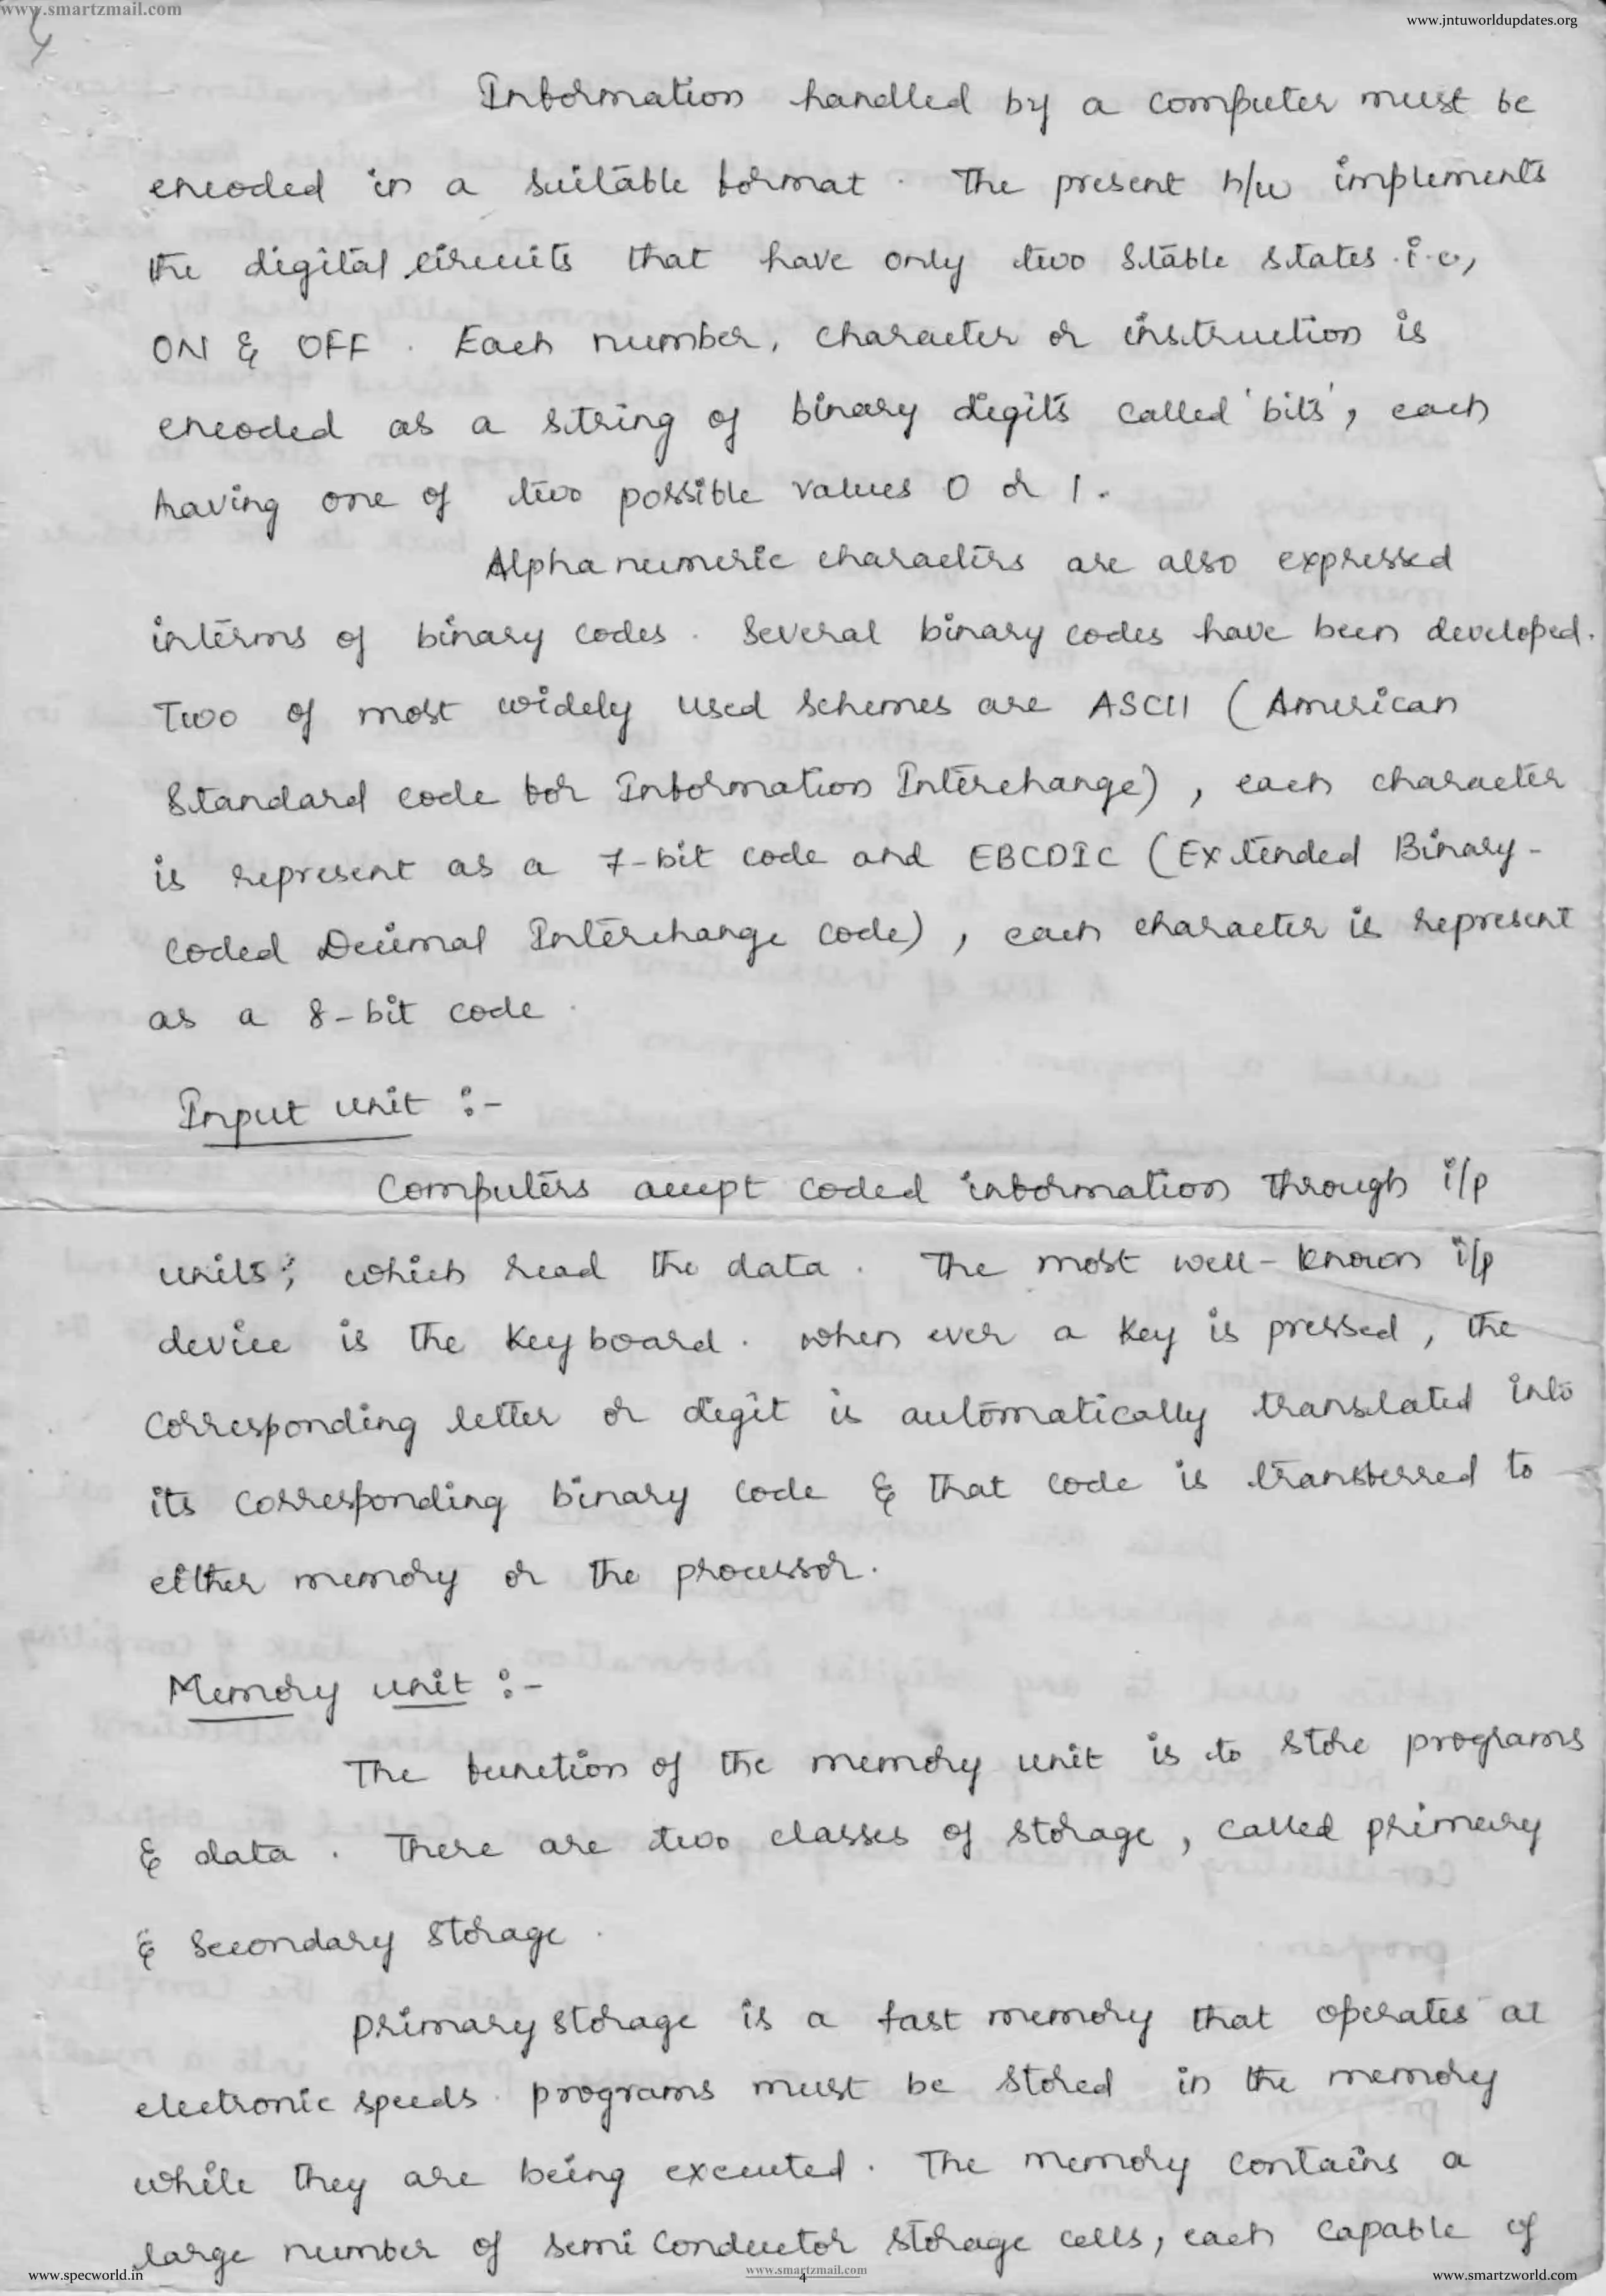 www.smartzmail.com
www.jntuworldupdates.org
4
Information handled by a computer must be
encoded in a suitable format. The present h/w implements
the digital circuits that have only two stable states i.e,
ON & OFF. Each number, character or instruction is
encoded as a string of binary digits called 'bits', each
having one of two possible values 0 or 1.
Alphanumeric characters are also expressed
interms of binary codes. Several binary codes have been developed.
Two of most widely used schemes are ASCII (American
Standard code for Information Interchange), each character
is represent as a 7-bit code and EBCDIC (Extended Binary-
Coded Decimal Interchange code), each character is represent
as a 8-bit code.
Input unit :-
Computers accept coded information through i/p
units, which read the data. The most well-known i/p
device is the keyboard. when ever a key is pressed, the
corresponding letter or digit is automatically translated into
its corresponding binary code & that code is transferred to
either memory or the processor.
Memory unit :-
The function of the memory unit is to store programs
& data. There are two classes of storage, called primary
& secondary storage.
primary storage is a fast memory that operates at
electronic speeds. programs must be stored in the memory
while they are being executed. The memory contains a
large number of semi conductor storage cells, each capable of
www.specworld.in
www.smartzmail.com
4
www.smartzworld.com